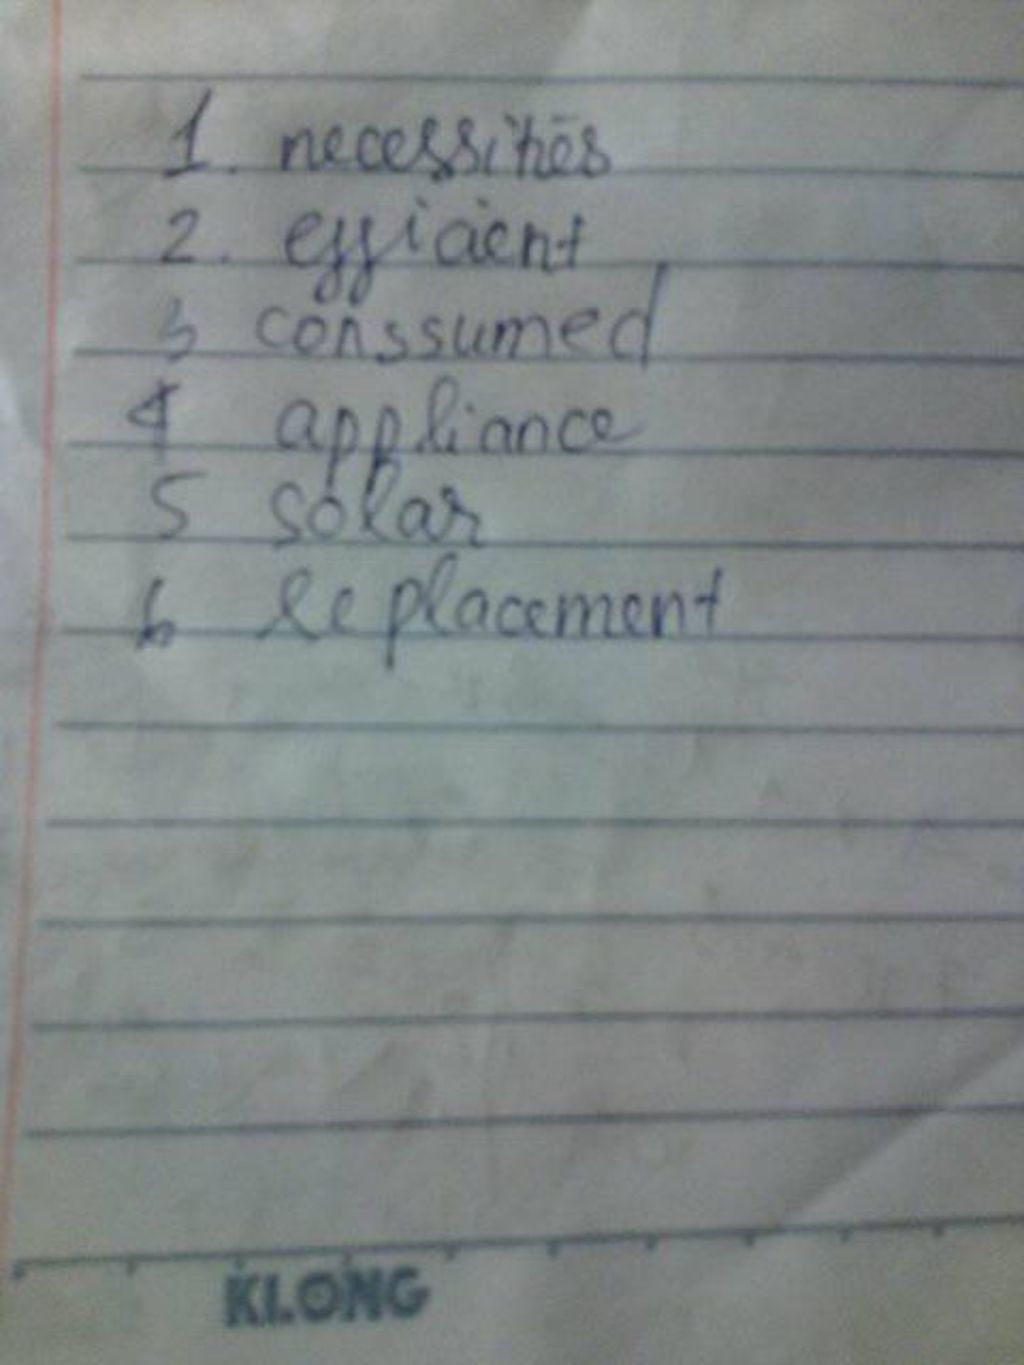 1. necessities
2. efficient
3 conssumed
4 appliance
5 solar
6 replacement
KLONG